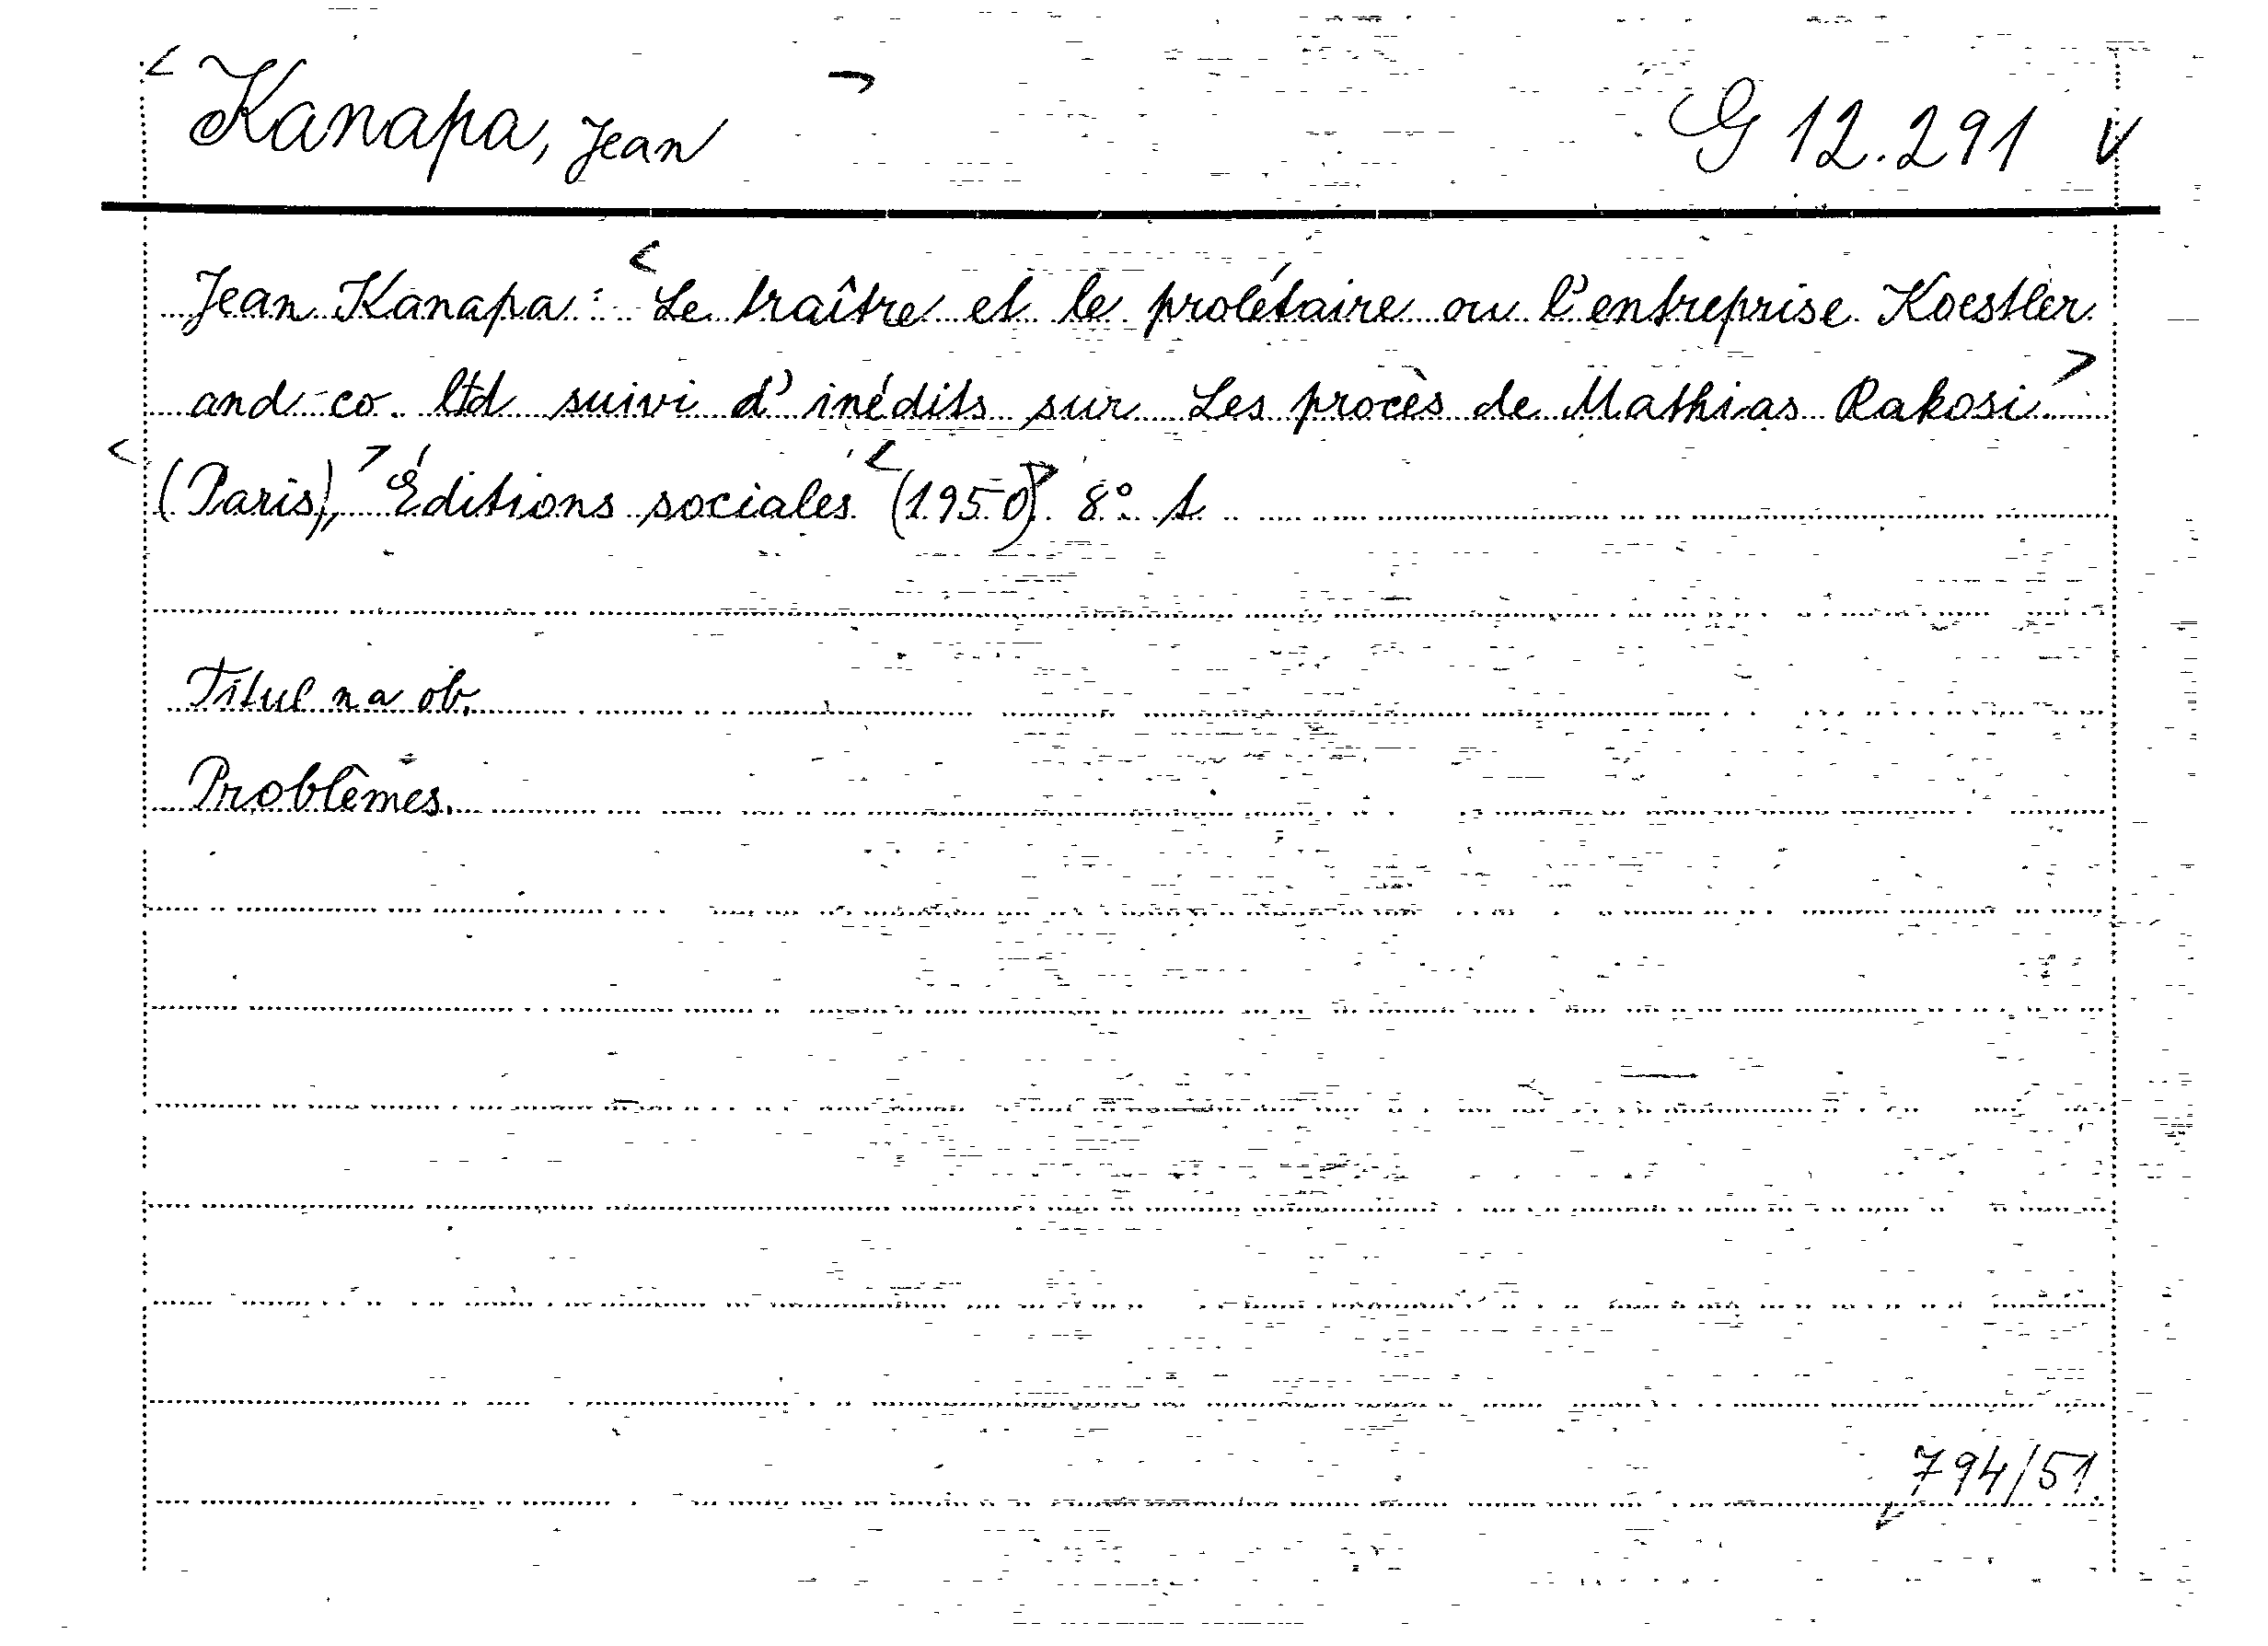 Kanapa, Jean G 12.291 v
Jean Kanapa: Le traître et le prolétaire ou l'entreprise Koestler
and co. ltd suivi d'inédits sur Les procès de Mathias Rakosi.
(Paris), Éditions sociales (1950). 8°. 1
Titul na ob.
Problêmes.
794/51.